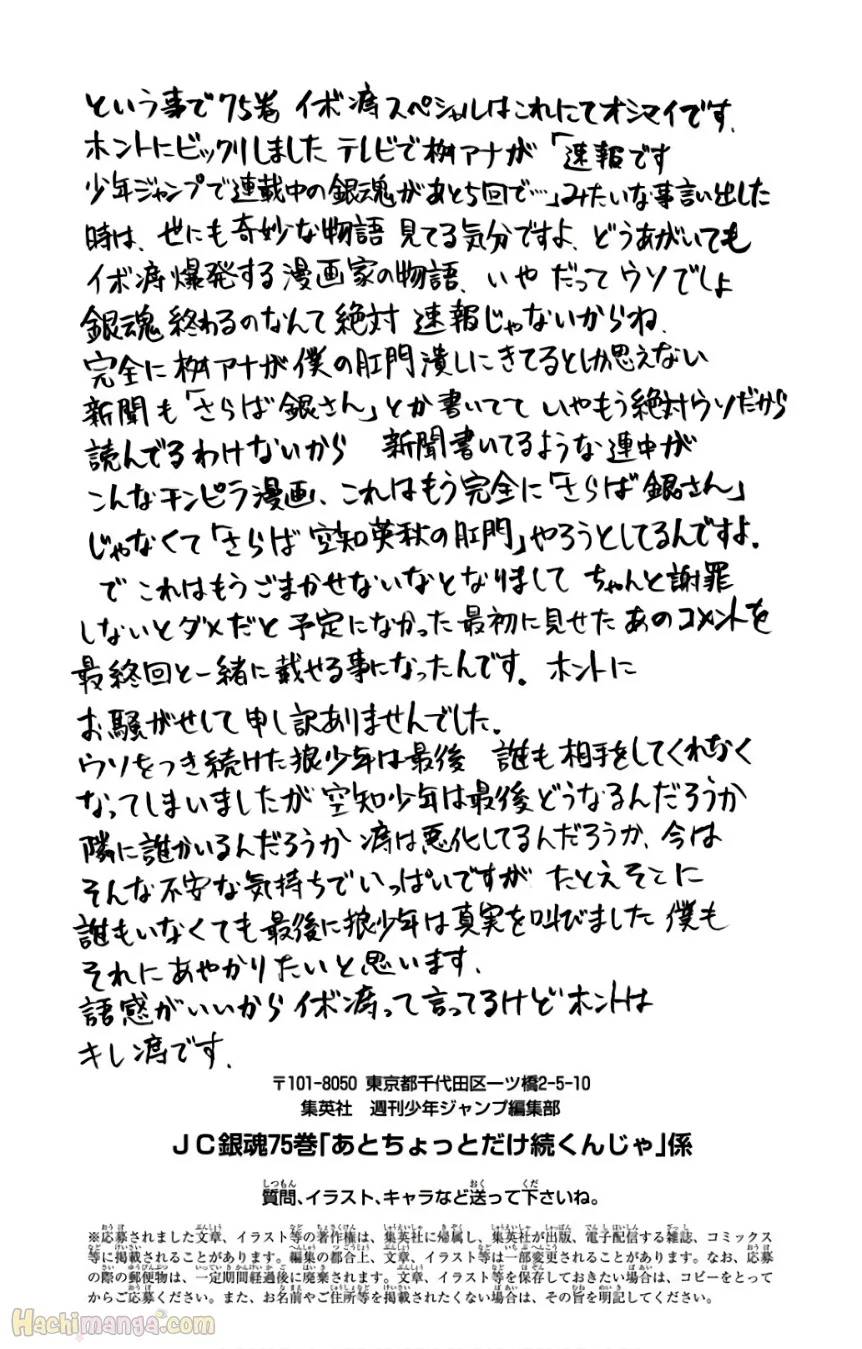 という事で75巻 イボ痔スペシャルはこれにてオシマイです、
ホントにビックリしました テレビで桝アナが「速報です
少年ジャンプで連載中の銀魂があと5回で…」みたいな事言い出した
時は、世にも奇妙な物語 見てる気分ですよ、どうあがいても
イボ痔爆発する漫画家の物語、いや だって ウソでしょ
銀魂 終わるのなんて絶対 速報じゃないからね、
完全に桝アナが僕の肛門潰しにきてるとしか思えない
新聞も「さらば銀さん」とか書いてて いやもう絶対ウソだから
読んでるわけないから 新聞書いてるような連中が
こんなチンピラ漫画、これはもう完全に「さらば銀さん」
じゃなくて「さらば 空知英秋の肛門」やろうとしてるんですよ。
で これはもうごまかせないなとなりまして ちゃんと謝罪
しないとダメだと 予定になかった最初に見せた あのコメントを
最終回と一緒に載せる事になったんです。ホントに
お騒がせして申し訳ありませんでした。
ウソをつき続けた狼少年は最後 誰も相手をしてくれなく
なってしまいましたが 空知少年は最後どうなるんだろうか
隣に誰かいるんだろうか 痔は悪化してるんだろうか、今は
そんな不安な気持ちでいっぱいですが たとえそこに
誰もいなくても最後に狼少年は真実を叫びました 僕も
それにあやかりたいと思います、
語感がいいから イボ痔って言ってるけど ホントは
キレ痔です、
〒101-8050 東京都千代田区一ツ橋2-5-10
集英社 週刊少年ジャンプ編集部
JC銀魂75巻「あとちょっとだけ続くんじゃ」係
質問、イラスト、キャラなど送って下さいね。
※応募されました文章、イラスト等の著作権は、集英社に帰属し、集英社が出版、電子配信する雑誌、コミックス
等に掲載されることがあります。編集の都合上、文章、イラスト等は一部変更されることがあります。なお、応募
の際の郵便物は、一定期間経過後に廃棄されます。文章、イラスト等を保存しておきたい場合は、コピーをとって
からご応募ください。また、お名前やご住所等を掲載されたくない場合は、その旨を明記してください。
Hachimanga.com